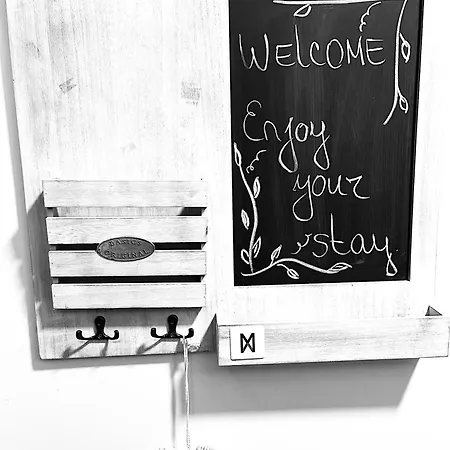 WELCOME
Enjoy
your
stay
BASICS
ORIGINAL